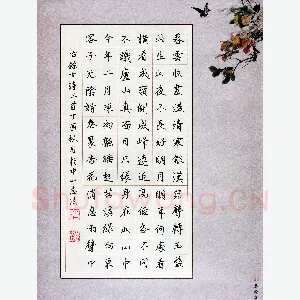 暮雲收盡溢清寒銀漢無聲轉玉盤
此生此夜不長好明月明年何處看
橫看成嶺側成峰遠近高低各不同
不識廬山真面目只緣身在此山中
今年二月凍初融睡起苕溪綠向東
客子光陰詩卷裏杏花消息雨聲中
古詩三首丁酉秋月於中山